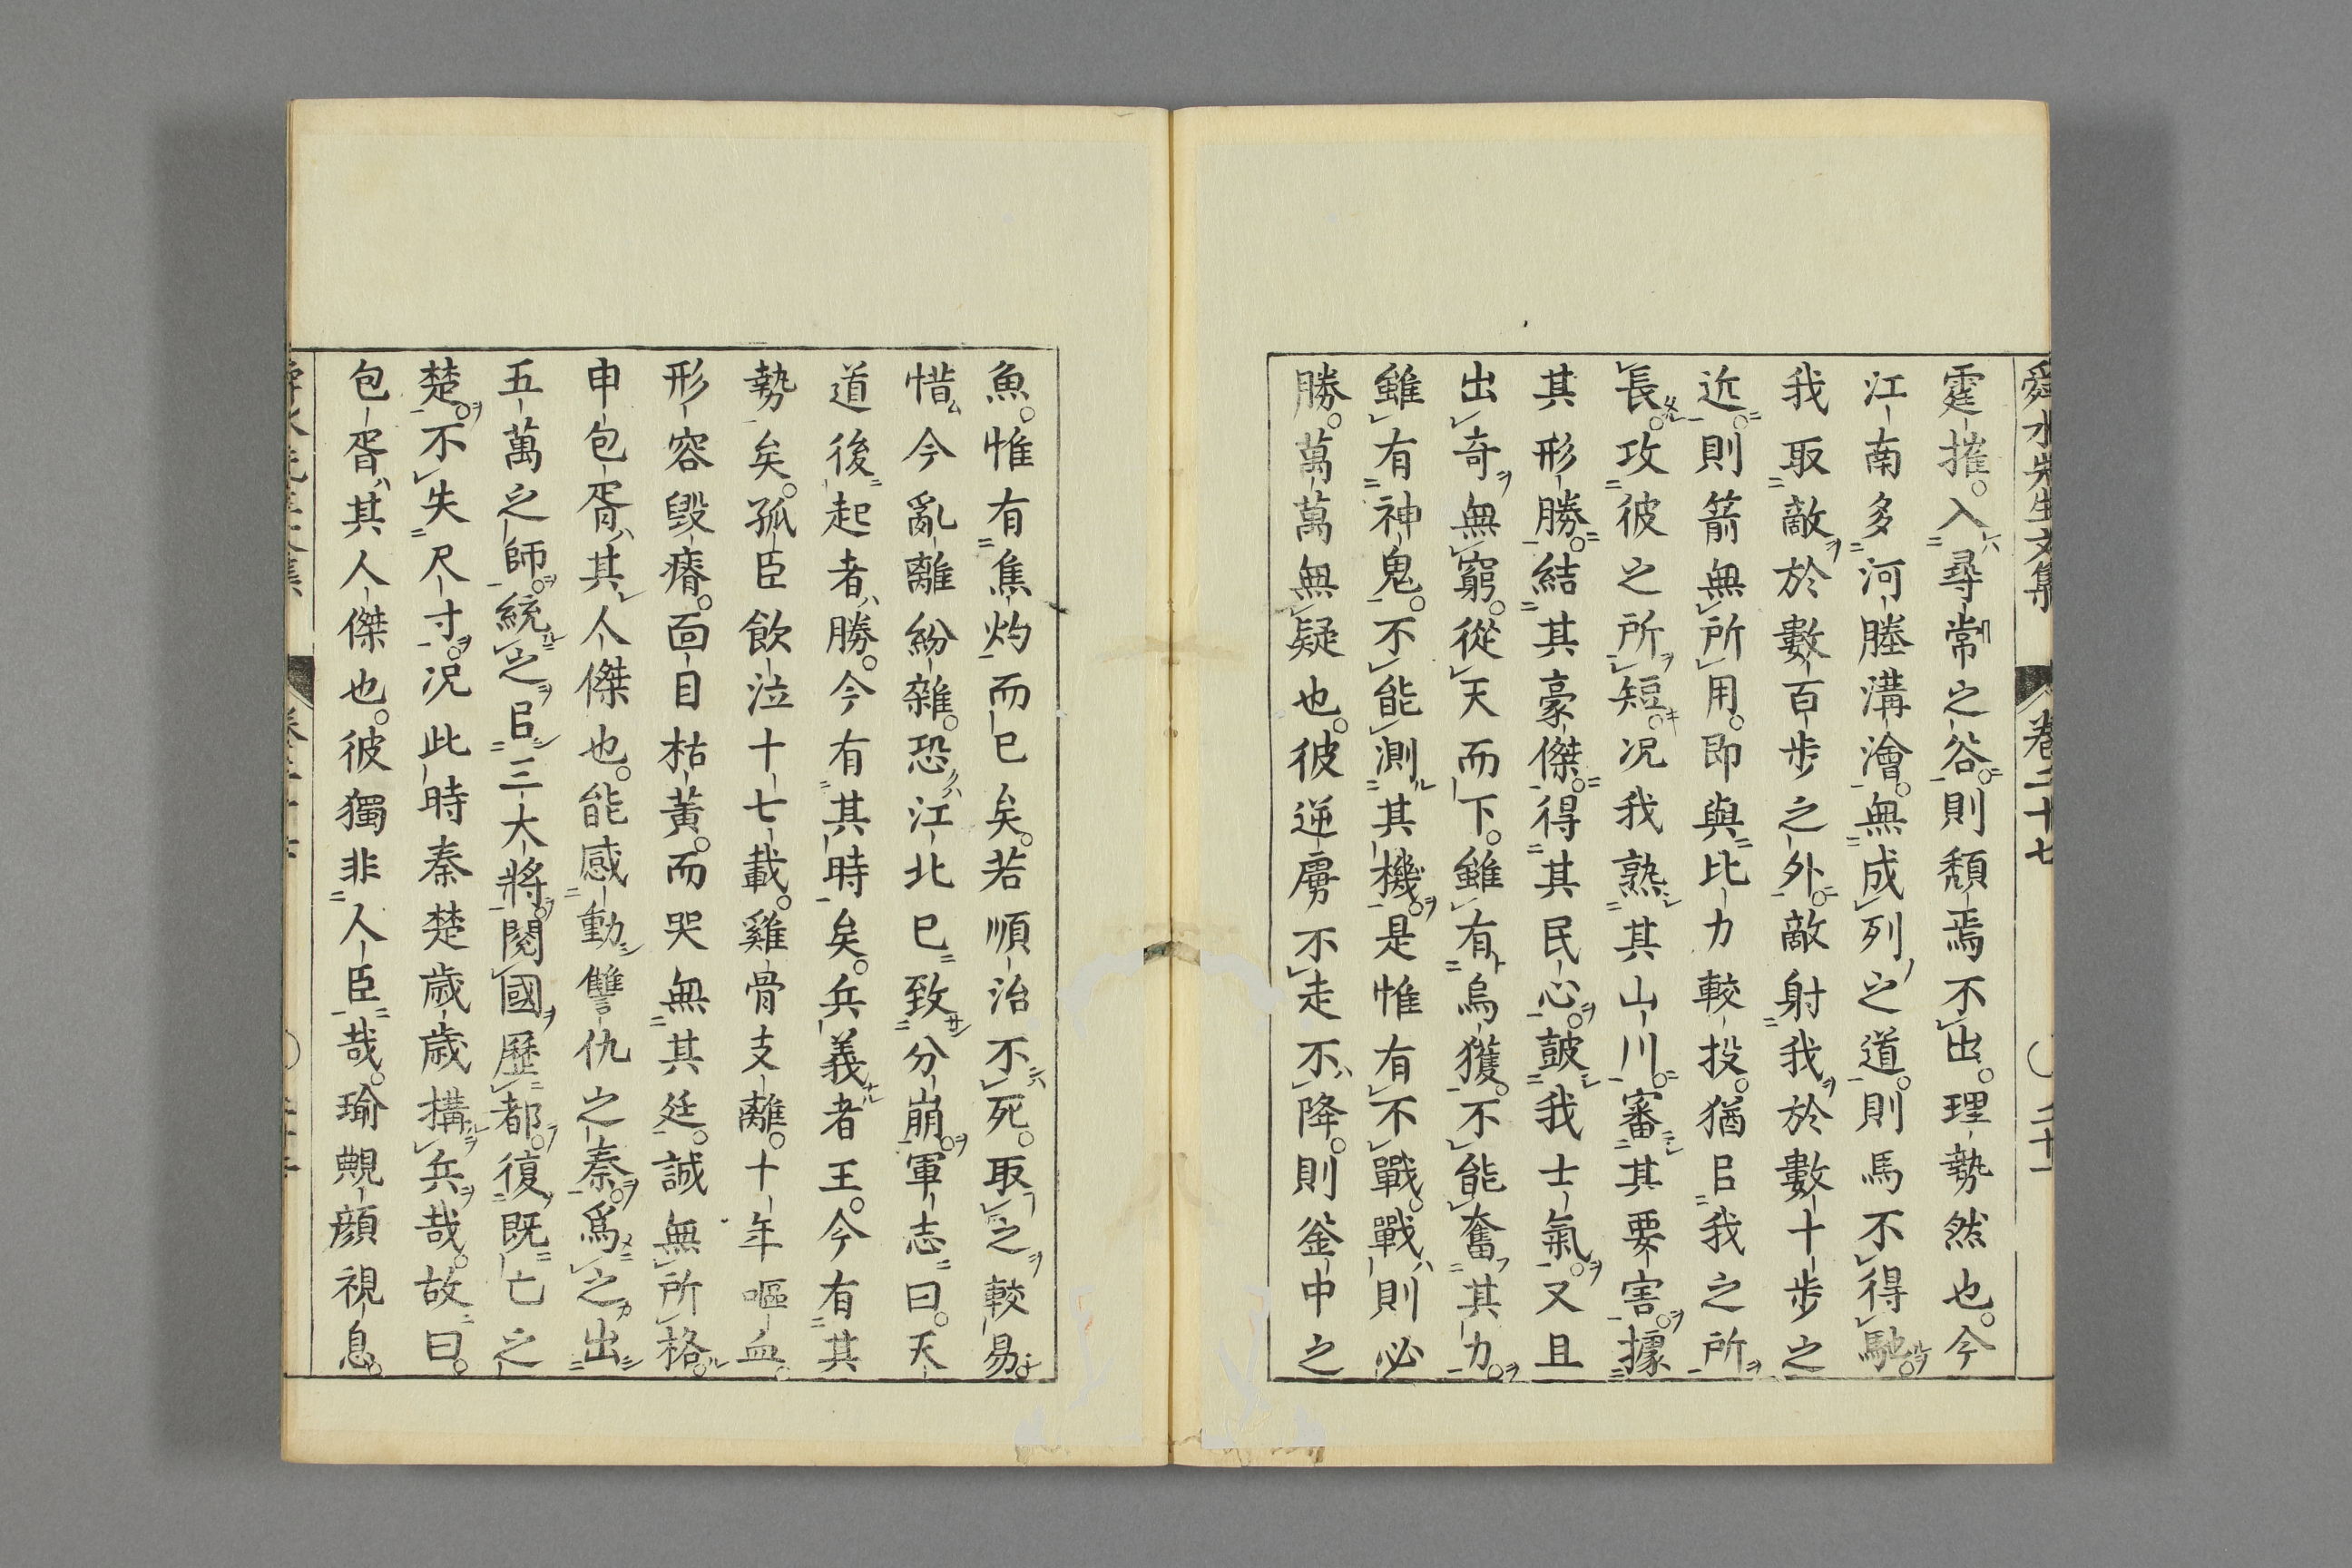 舜水先生文集 卷二十七 二十一
霆摧。入尋常之谷。則頹焉不出。理勢然也。今
江南多河塍溝澮。無成列之道。則馬不得馳。
我取敵於數百步之外。敵射我於數十步之
近。則箭無所用。即與比力較投。猶㠯我之所
長。攻彼之所短。况我熟其山川。審其要害。據
其形勝。結其豪傑。得其民心。皷我士氣。又且
出奇無窮。從天而下。雖有烏獲。不能奮其力。
雖有神鬼。不能測其機。是惟有不戰。戰則必
勝。萬萬無疑也。彼逆虜不走不降。則釜中之
魚。惟有焦灼而已矣。若順治不死。取之較易。
惜今亂離紛雜。恐江北已致分崩。軍志曰。天
道後起者勝。今有其時矣。兵義者王。今有其
勢矣。孤臣飲泣十七載。雞骨支離。十年嘔血。
形容毀瘠。面目枯黃。而哭無其廷。誠無所格。
申包胥其人傑也。能感動讐仇之秦。爲之出
五萬之師。統之㠯三大將。閱國歷都。復既亡之
楚。不失尺寸。况此時秦楚歲歲搆兵哉。故曰。
包胥其人傑也。彼獨非人臣哉。瑜靦顔視息。